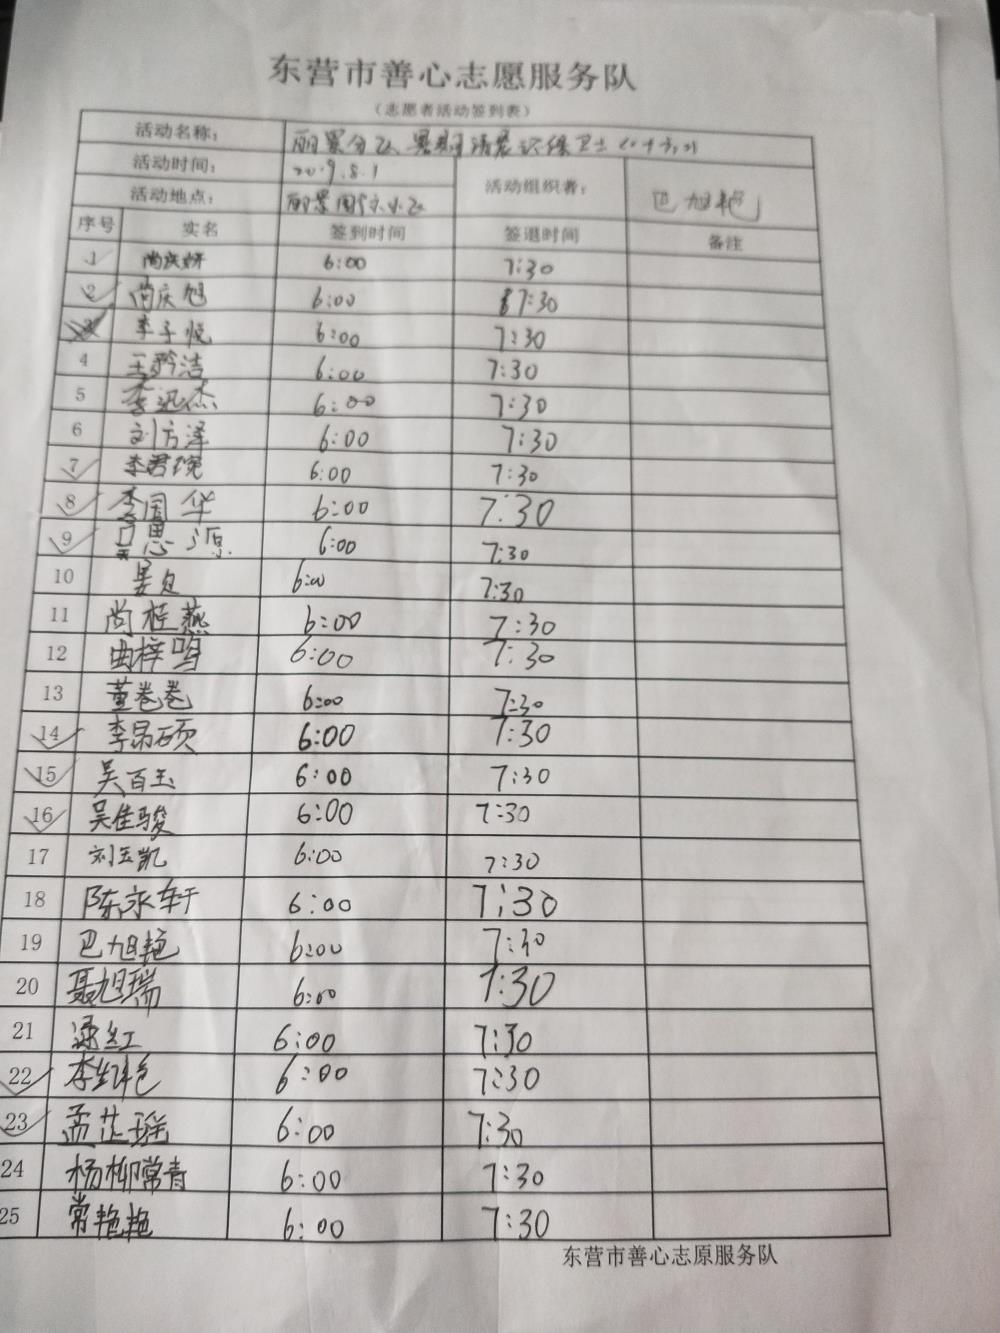 东营市善心志愿服务队
（志愿者活动签到表）
活动名称： 丽景分队 暑期清晨环保卫士
活动时间： 2019.8.1 活动组织者： 巴旭艳
活动地点： 丽景
序号 实名 签到时间 签退时间 备注
1 尚庆妍 6:00 7:30
2 尚庆旭 6:00 7:30
3 李子悦 6:00 7:30
4 王矜洁 6:00 7:30
5 李迅杰 6:00 7:30
6 刘方泽 6:00 7:30
7 李君琬 6:00 7:30
8 李国华 6:00 7:30
9 吴思源 6:00 7:30
10 6:00 7:30
11 尚桂燕 6:00 7:30
12 曲梓鸣 6:00 7:30
13 董卷卷 6:00 7:30
14 李昂硕 6:00 7:30
15 吴百玉 6:00 7:30
16 吴佳骏 6:00 7:30
17 刘玉凯 6:00 7:30
18 陈永轩 6:00 7:30
19 巴旭艳 6:00 7:30
20 聂旭瑞 6:00 7:30
21 红 6:00 7:30
22 李 6:00 7:30
23 孟芷瑶 6:00 7:30
24 杨柳常青 6:00 7:30
25 常艳艳 6:00 7:30
东营市善心志原服务队